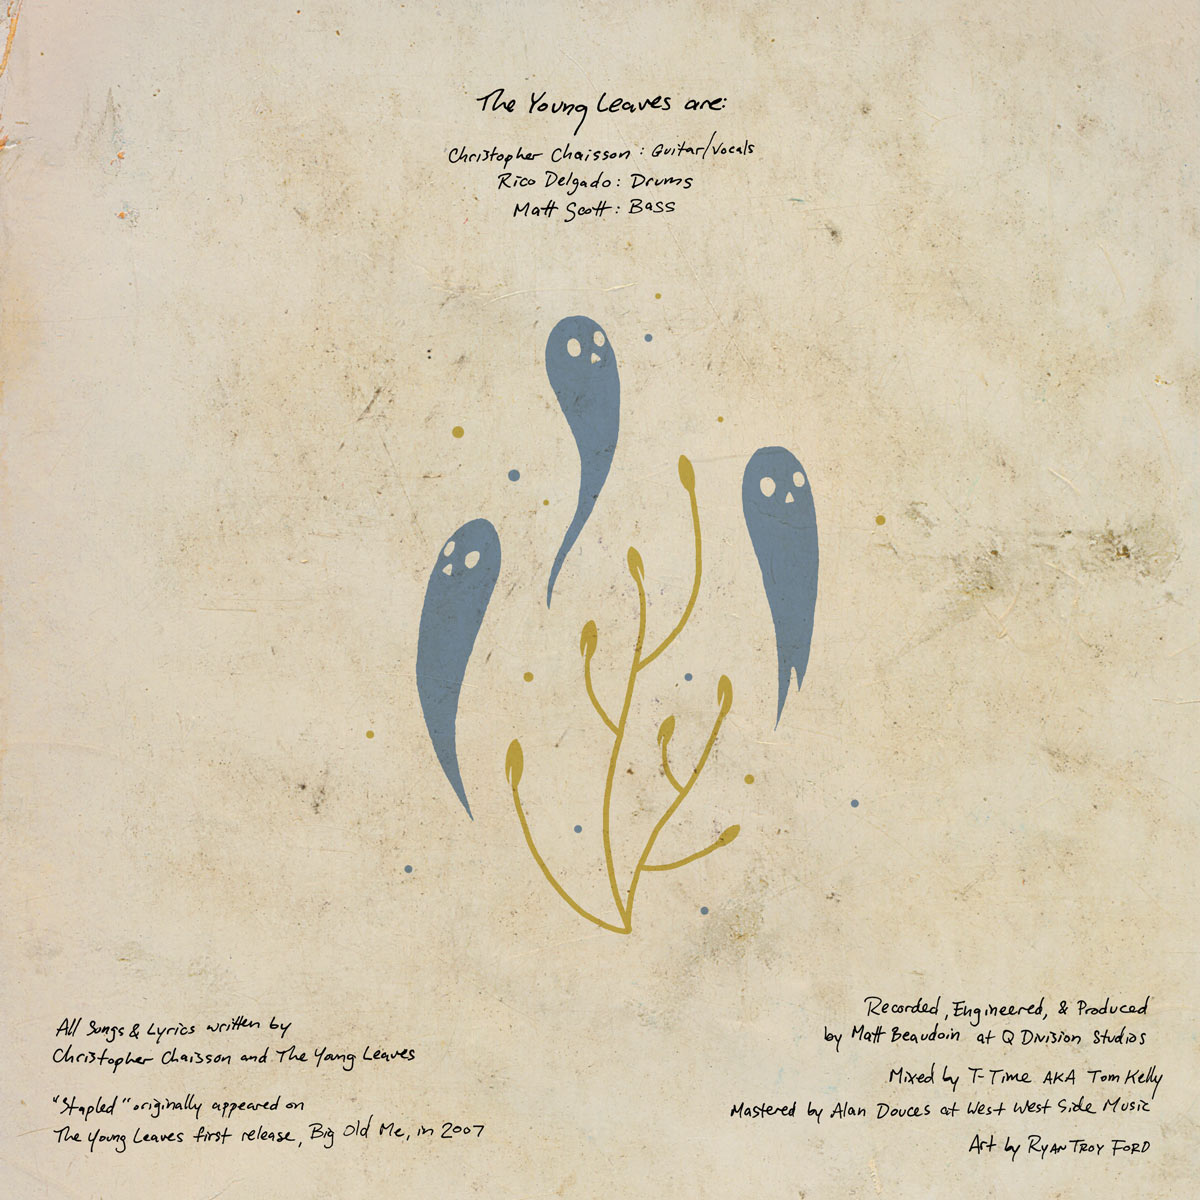 The Young Leaves are:
Christopher Chaisson : Guitar/Vocals
Rico Delgado : Drums
Matt Scott : Bass
All Songs & Lyrics written by
Christopher Chaisson and The Young Leaves
"Stapled" originally appeared on
The Young Leaves first release, Big Old Me, in 2007
Recorded, Engineered, & Produced
by Matt Beaudoin at Q Division Studios
Mixed by T-Time AKA Tom Kelly
Mastered by Alan Douces at West West Side Music
Art by Ryan Troy Ford